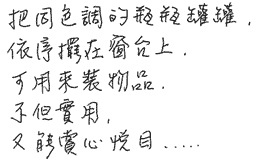 把同色調的瓶瓶罐罐，
依序擺在窗台上，
可用來裝物品，
不但實用，
又能賞心悅目.....